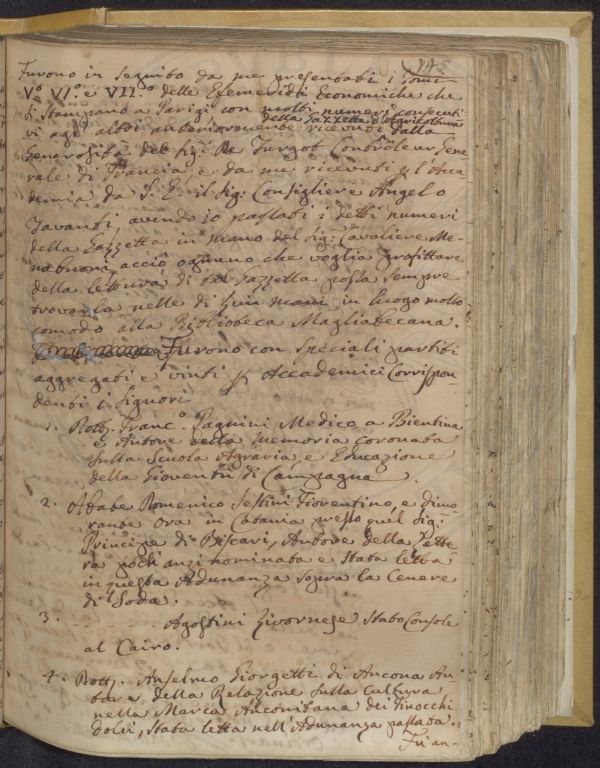 Furono in seguito da me presentati i Tomi
V.° VI.° e VII.° delle Efemeridi Economiche che
si Stampano a Parigi con molti numeri consecuti
della Gazzetta d'Agricoltura
vi agl' altri anteriormente ricevuti dalla
Generosità del Sig.r De Turgot Controleur Gene
rale di Francia, e da me ricevuti p l'Acca
demia da S. E. il Sig: Consigliere Angelo
Tavanti, avendo io passati i detti numeri
della Gazzetta in mano del Sig: Cavaliere Me-
nabuoni acciò ognuno che voglia profittare
della lettura di tal Gazzetta possa sempre
trovarla nelle di Lui mani in luogo molto
comodo alla Biblioteca Magliabecana.
Furono con speciali partiti
aggregati e vinti p Accademici Corrispon-
denti i Signori
1. Dott. Franc.° Pagnini Medico a Bientina
e Autore della memoria coronata
sulla Scuola Agraria, e Educazione
della Gioventù di Campagna.
2. Abate Domenico Sestini Fiorentino, e dimo-
rante ora in Catania presso quel Sig:
Principe di Biscari, Autore della Lette-
ra poch'anzi nominata e Stata letta
in questa Adunanza sopra la Cenere
di Soda.
3. Agostini Livornese Stato Console
al Cairo.
4. Dott. Anselmo Giorgetti di Ancona Au-
tore della Relazione sulla Cultura
nella Marca Anconitana dei Finocchi
dolci, Stata letta nell'Adunanza passata.
Fù an-